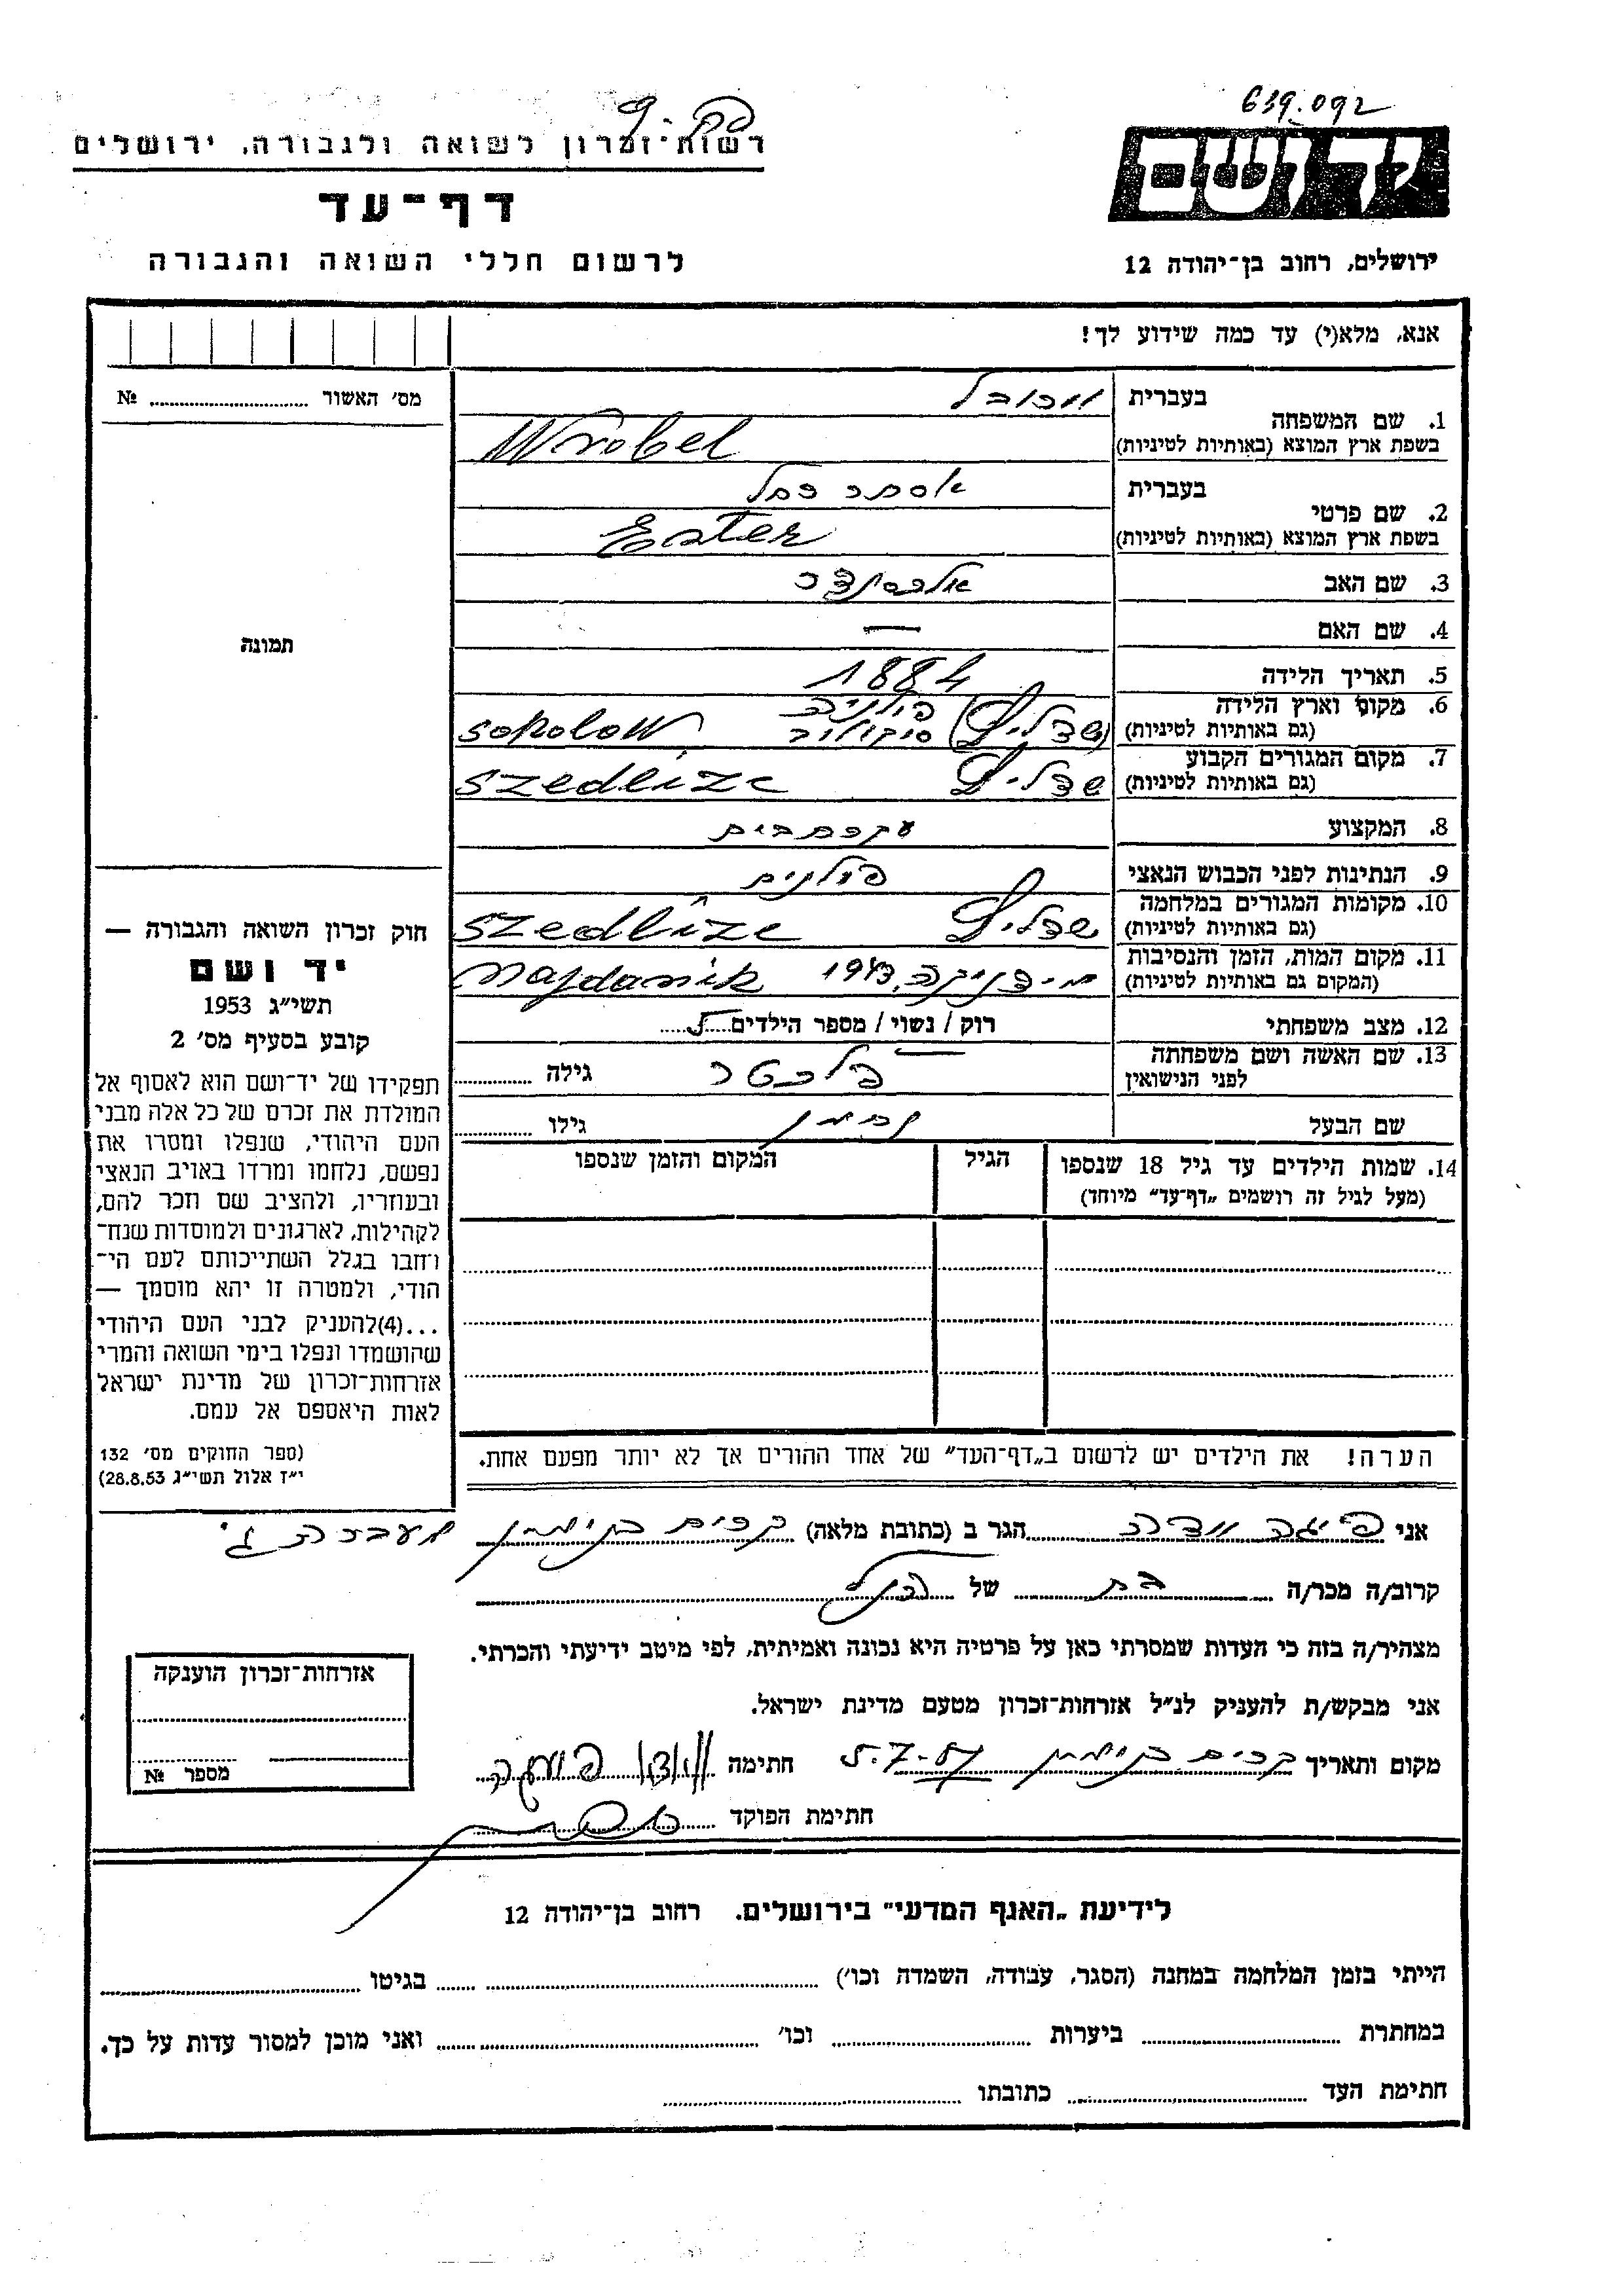 639.092
רשות-זכרון לשואה ולגבורה, ירושלים
דף-עד
לרשום חללי השואה והגבורה
ירושלים, רחוב בן-יהודה 12
אנא, מלא(י) עד כמה שידוע לך!
מס׳ האשור ........ №
תמונה
1. שם המשפחה
בעברית וורובל
בשפת ארץ המוצא (באותיות לטיניות) Wrobel
2. שם פרטי
בעברית אסתר רחל
בשפת ארץ המוצא (באותיות לטיניות) Ester
3. שם האב אלכסנדר
4. שם האם —
5. תאריך הלידה 1884
6. מקום וארץ הלידה
(גם באותיות לטיניות) (שדליץ) פולניה סוקולוב sokolow
7. מקום המגורים הקבוע
(גם באותיות לטיניות) שדליץ szedlize
8. המקצוע עקרת בית
9. הנתינות לפני הכבוש הנאצי פולנית
10. מקומות המגורים במלחמה
(גם באותיות לטיניות) שדליץ szedlize
11. מקום המות, הזמן והנסיבות
(המקום גם באותיות לטיניות) 1943 Majdanik
12. מצב משפחתי רוק / נשוי / מספר הילדים 5
13. שם האשה ושם משפחתה
לפני הנישואין גילה
שם הבעל נחמן גילו
14. שמות הילדים עד גיל 18 שנספו
(מעל לגיל זה רושמים „דף-עד״ מיוחד)
הגיל
המקום והזמן שנספו
הערה! את הילדים יש לרשום ב„דף-העד״ של אחד ההורים אך לא יותר מפעם אחת.
חוק זכרון השואה והגבורה —
יד ושם
תשי״ג 1953
קובע בסעיף מס׳ 2
תפקידו של יד-ושם הוא לאסוף אל
המולדת את זכרם של כל אלה מבני
העם היהודי, שנפלו ומסרו את
נפשם, נלחמו ומרדו באויב הנאצי
ובעוזריו, ולהציב שם וזכר להם,
לקהילות, לארגונים ולמוסדות שנח-
רבו בגלל השתייכותם לעם הי-
הודי, ולמטרה זו יהא מוסמך —
...(4)להעניק לבני העם היהודי
שהושמדו ונפלו בימי השואה והמרי
אזרחות-זכרון של מדינת ישראל
לאות היאספם אל עמם.
(ספר החוקים מס׳ 132
י״ז אלול תשי״ג 28.8.53)
אני הגר ב (כתובת מלאה) קרית בנימין מעברה ג׳
קרוב/ה מכר/ה בת של הנ״ל
מצהיר/ה בזה כי העדות שמסרתי כאן על פרטיה היא נכונה ואמיתית, לפי מיטב ידיעתי והכרתי.
אני מבקש/ת להעניק לנ״ל אזרחות-זכרון מטעם מדינת ישראל.
מקום ותאריך קרית בנימין 5.7.57 חתימה
חתימת הפוקד
אזרחות-זכרון הוענקה
מספר №
לידיעת „האגף המדעי״ בירושלים. רחוב בן-יהודה 12
הייתי בזמן המלחמה במחנה (הסגר, עבודה, השמדה וכו׳) ........ בגיטו ........
במחתרת ........ ביערות ........ וכו׳ ........ ואני מוכן למסור עדות על כך.
חתימת העד ........ כתובתו ........